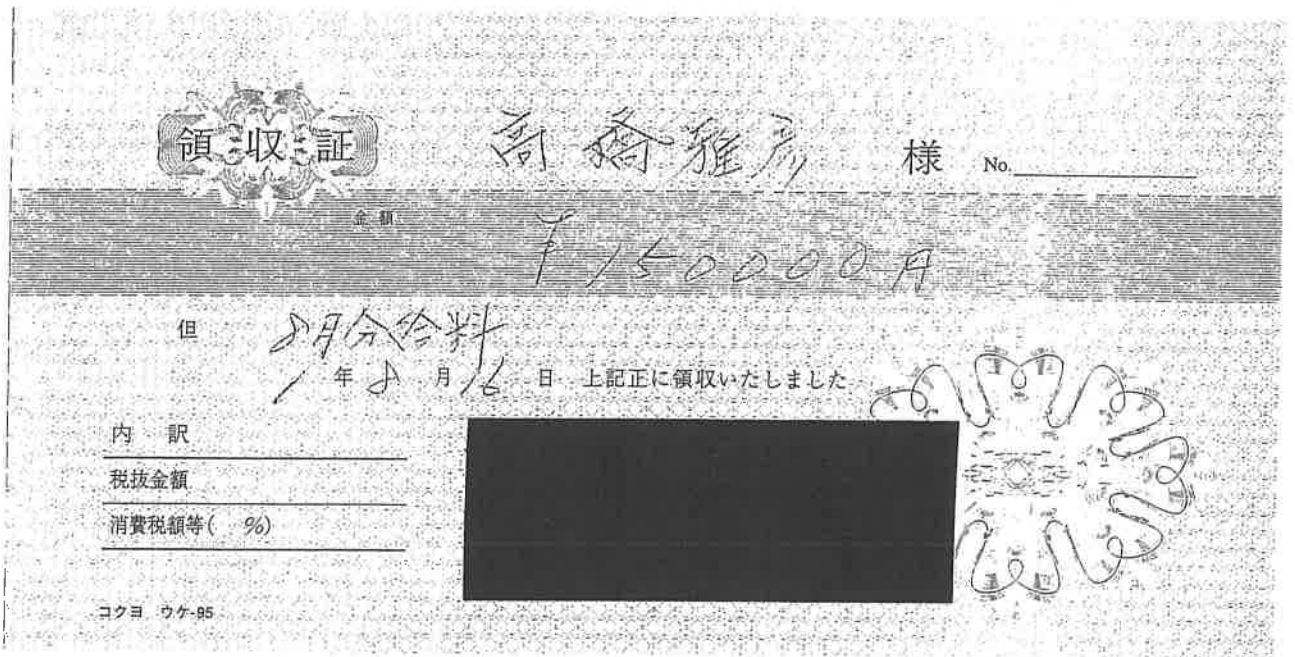 領収証 高橋雅彦 様 No.
金額 ¥150000円
但 8月分給料
1年8月16日 上記正に領収いたしました
内訳
税抜金額
消費税額等( %)
コクヨ ウケ-95